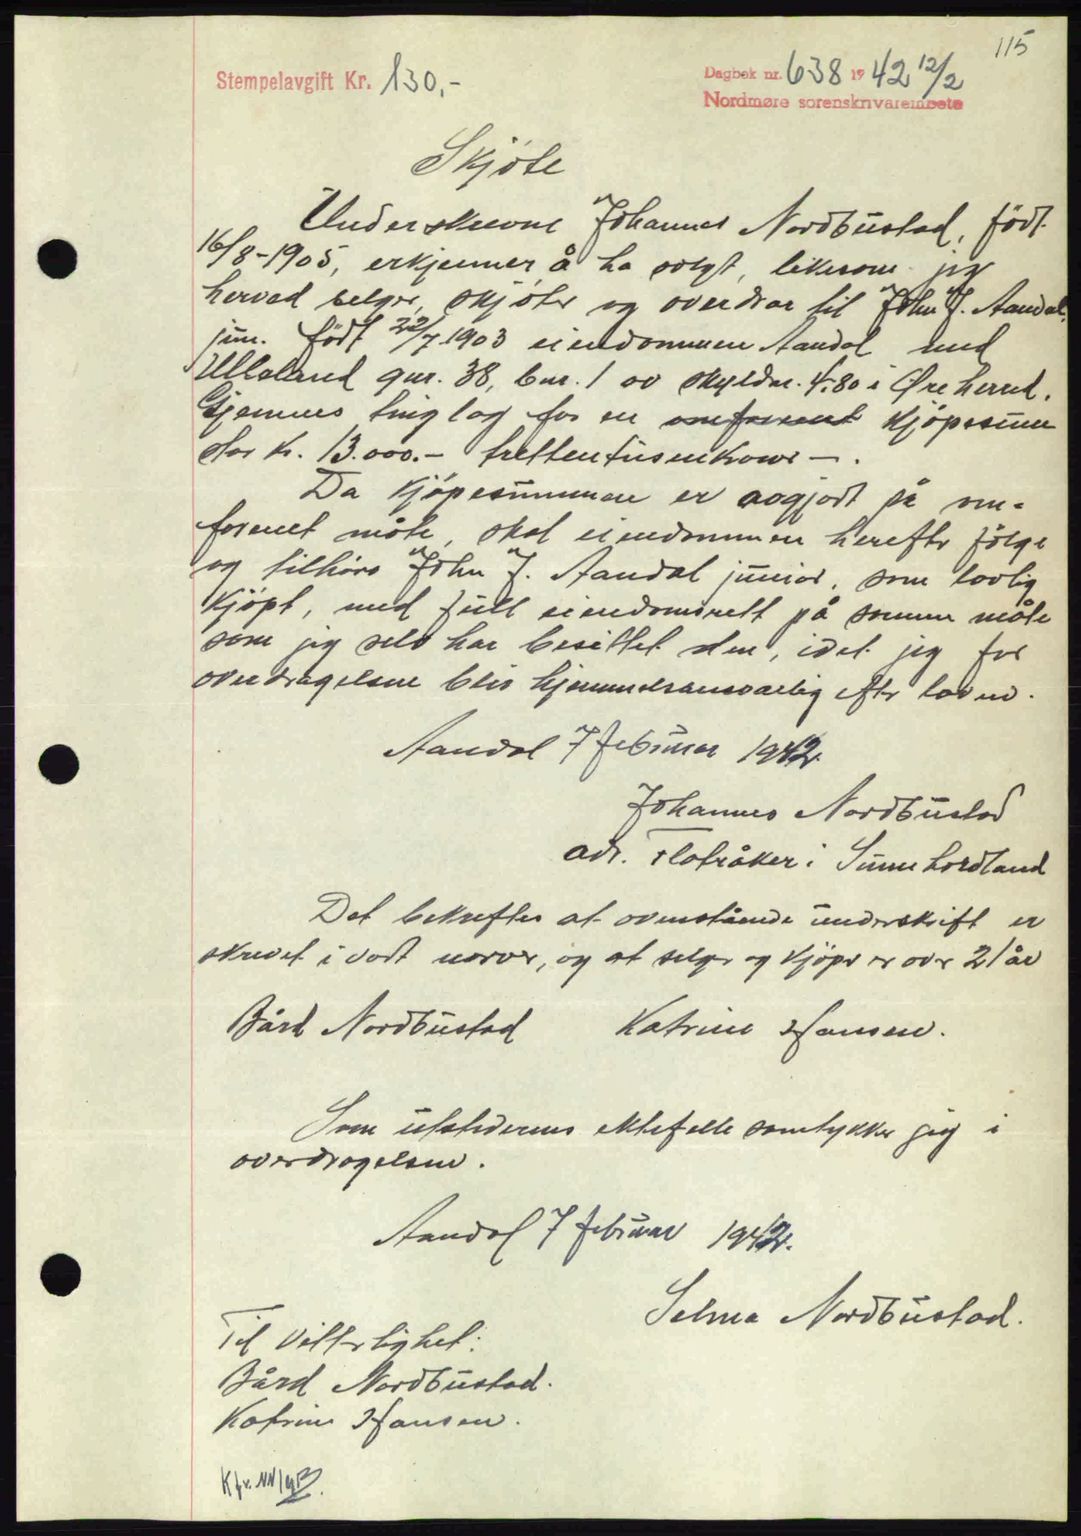 115
Stempelavgift Kr. 130,-
Dagbok nr. 638 1942 12/2
Nordmøre sorenskrivarembete
Skjöte
Underskrevne Johannes Nordbüstad, födt
16/8-1905, erkjenner å ha solgt, likesom jeg
herved selger, skjöter og overdrar til John J. Aandal
jun. födt 22/7 1903 eiendommen Aandal med
Ulleland gnr. 38, bnr. 1 av skyldm. 4.80 i Öre herred,
Gjemnes tinglag for en omforenet kjöpesüm
stor kr. 13.000.- trettentüsenkroner - .
Da kjöpesümmen er avgjort på om-
forenet måte, skal eiendommen herefter fölge
og tilhöre John J. Aandal jünior, som lovlig
kjöpt, med füll eiendomsrett på samme måte
som jeg selv har besittet den, idet jeg for
overdragelsen blir hjemmelsansvarlig efter loven.
Aandal 7 februar 1942.
Johannes Nordbüstad
adr. Flatråker i Sunnhordland
Det bekreftes at ovenstående ünderskrift er
skrevet i vort nærver, og at selger og kjöper er over 21 år
Bård Nordbüstad Katrine Hansen.
Som ütstederens ektefelle samtykker jeg i
overdragelsen.
Aandal 7 februar 1942.
Selma Nordbüstad.
Til Vitterlighet:
Bård Nordbüstad.
Katrine Hansen.